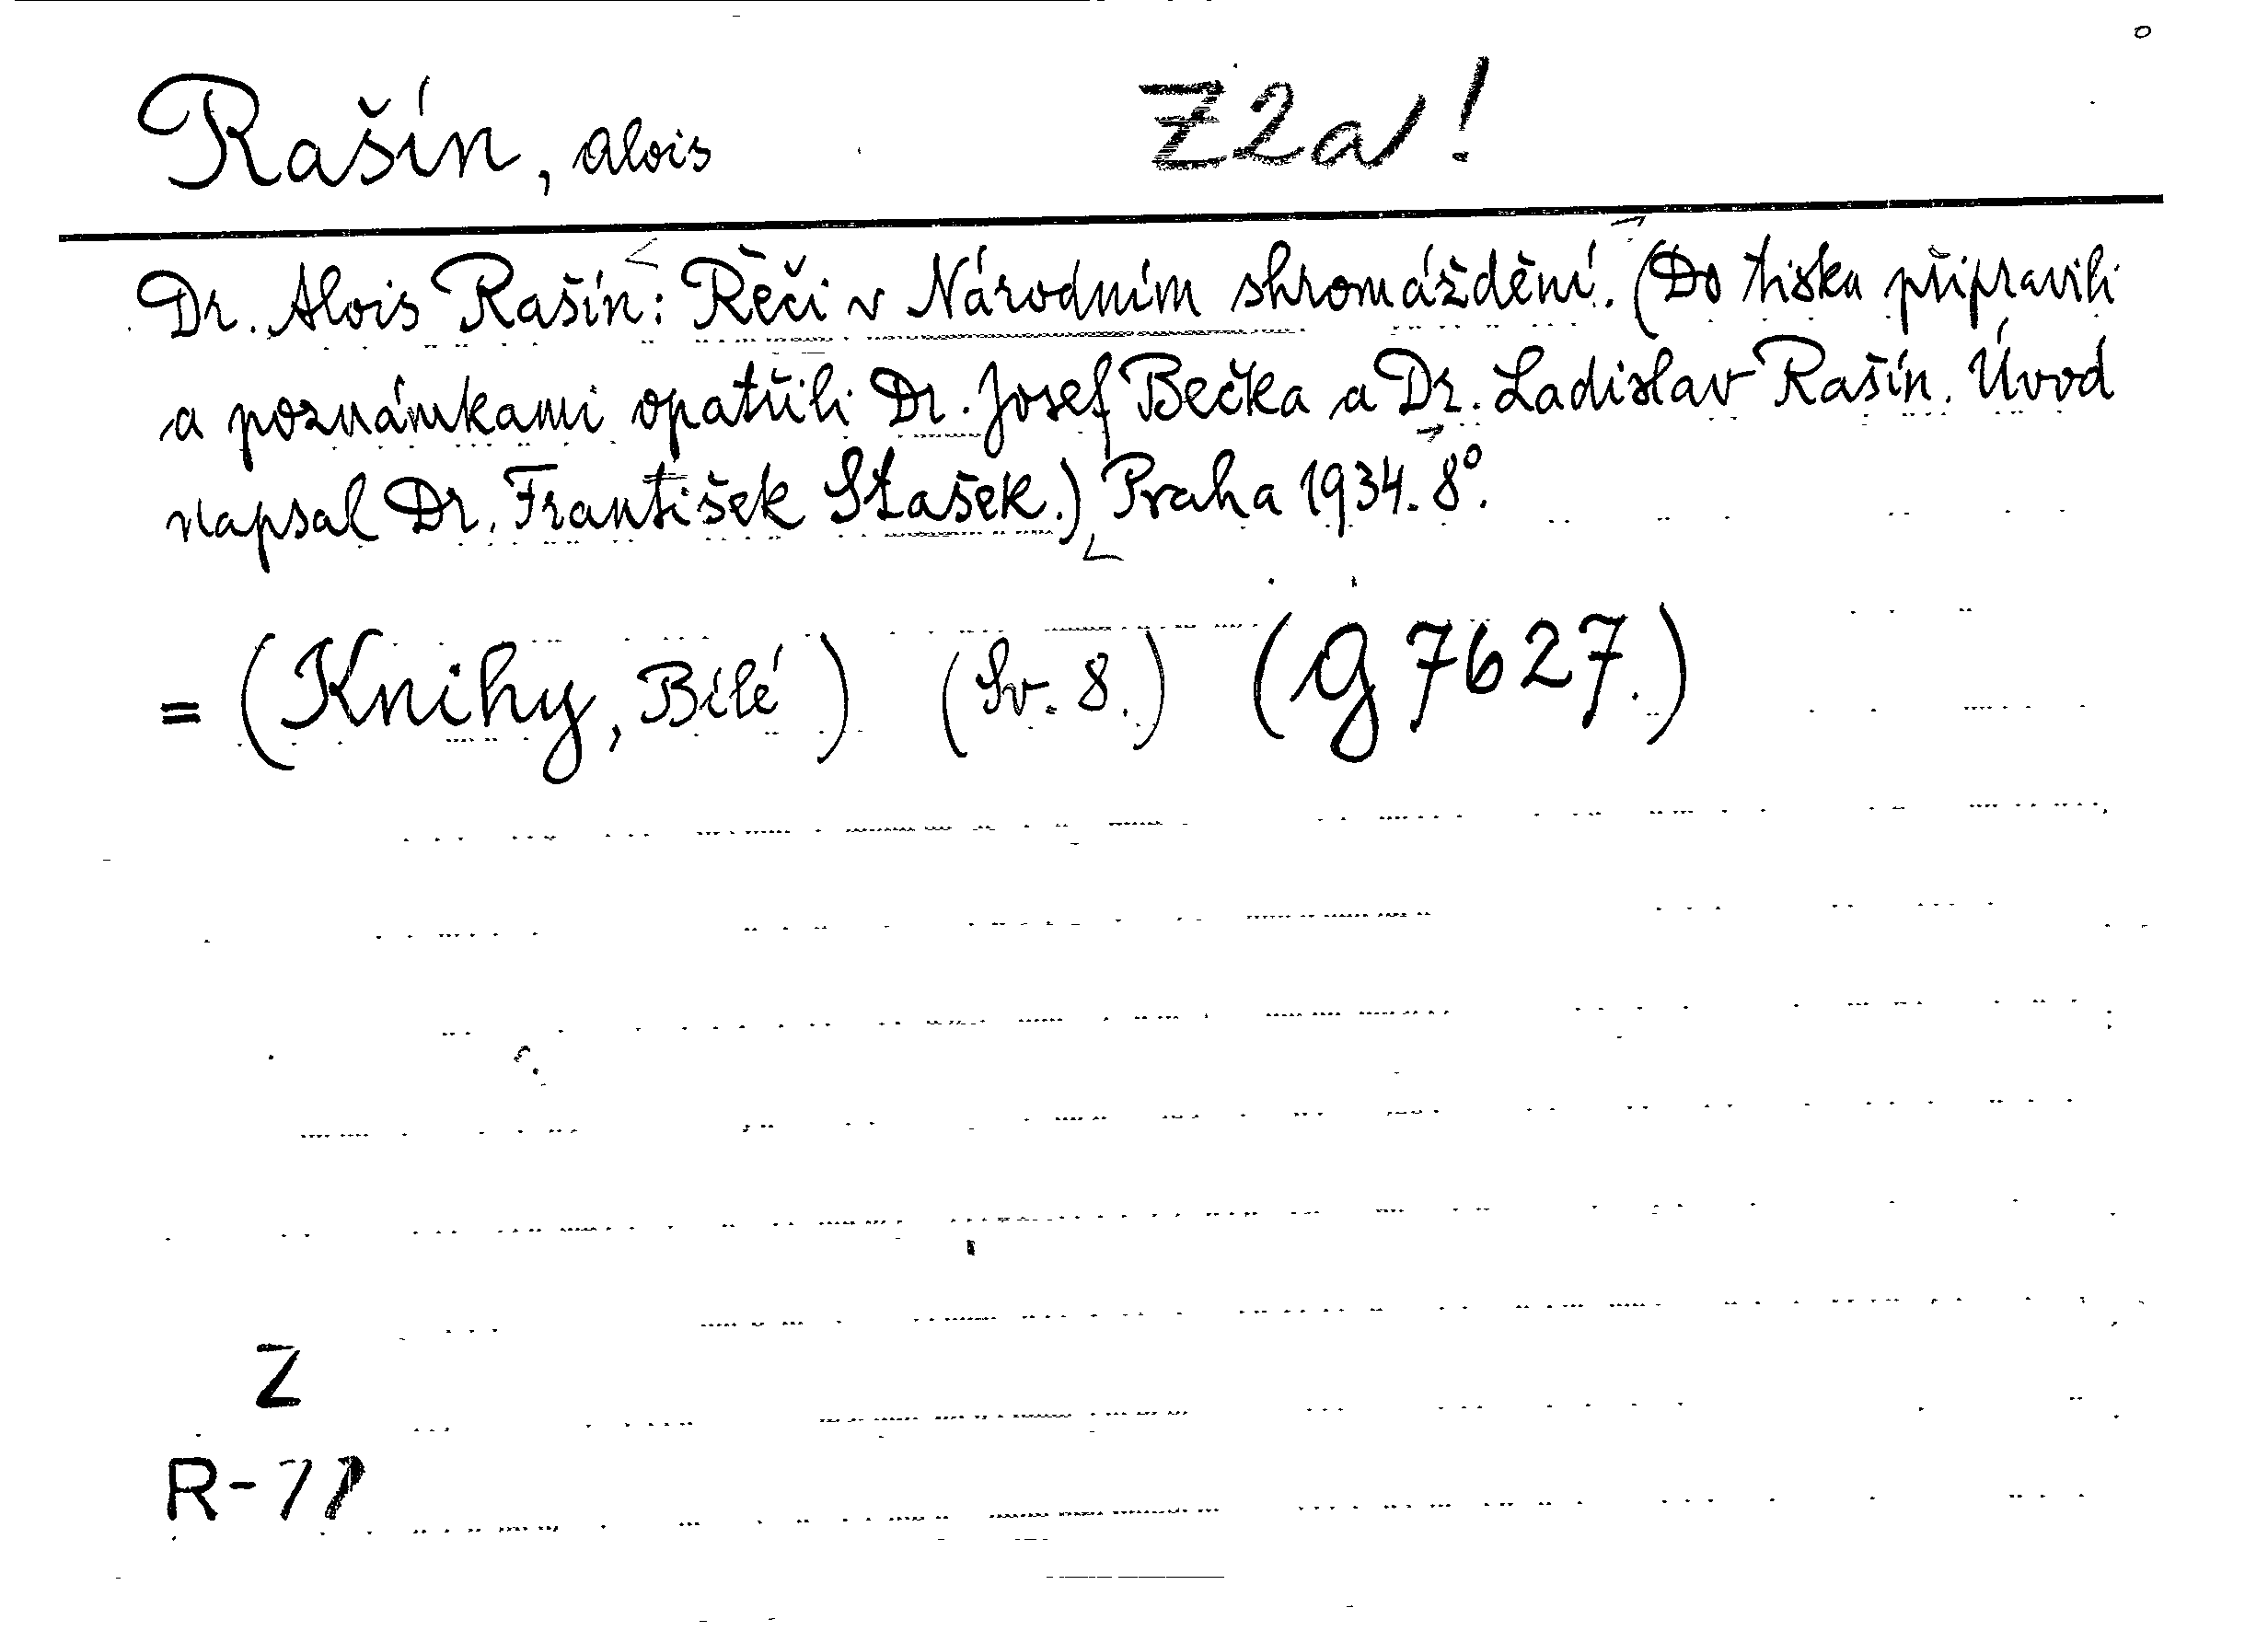 Rašín, Alois Z2a!
Dr. Alois Rašín: Řeči v Národním shromáždění. (Do tisku připravili
a poznámkami opatřili Dr. Josef Bečka a Dr. Ladislav Rašín. Úvod
napsal Dr. František Stašek.) Praha 1934. 8°.
= (Knihy, Bílé) (Sv. 8.) (g 7627.)
Z
R-77